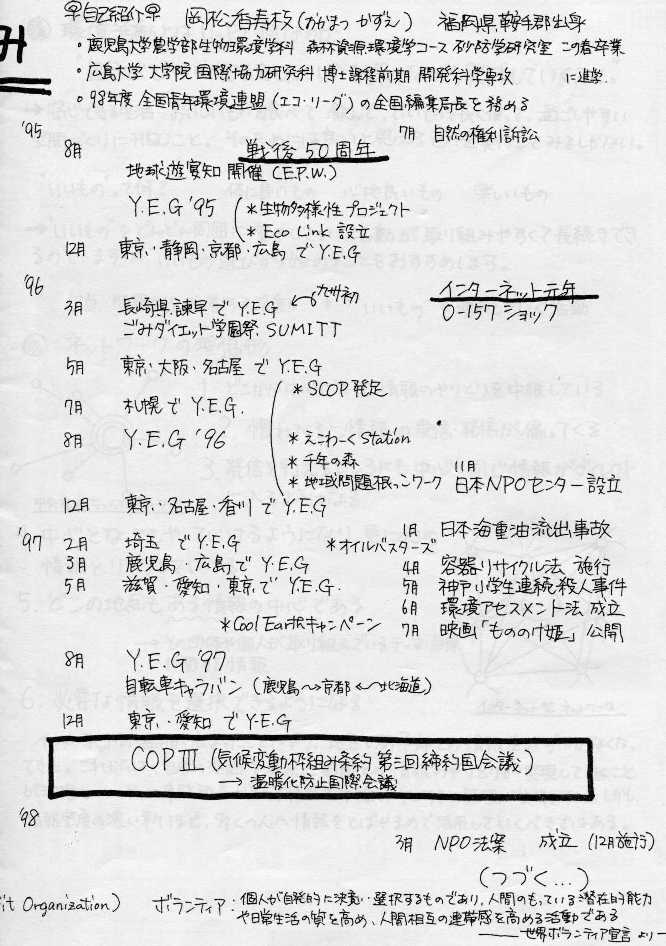 자기
自己紹介 岡松香寿枝(おかまつ かずえ) 福岡県鞍手郡出身
・鹿児島大学農学部生物環境学科 森林資源環境学コース 砂防学研究室 この春卒業
・広島大学 大学院 国際協力研究科 博士課程前期 開発科学専攻 に進学
・98年度 全国青年環境連盟(エコ・リーグ)の全国編集局長を務める
'95 7月 自然の権利訴訟
8月 戦後50周年
地球遊宴知 開催(E.P.W.)
Y.E.G '95 *生物多様性プロジェクト
*Eco Link 設立
12月 東京・静岡・京都・広島 で Y.E.G
'96
3月 長崎県諫早で Y.E.G ←九州初 インターネット元年
ごみダイエット学園祭 SUMITT O-157 ショック
5月 東京・大阪・名古屋 で Y.E.G
*SCOP発足
7月 札幌で Y.E.G.
8月 Y.E.G '96 *えこわーくStation
*千年の森
*地域問題根っこワーク 11月 日本NPOセンター設立
12月 東京・名古屋・香川 で Y.E.G
'97 2月 埼玉 で Y.E.G *オイルバスターズ 1月 日本海重油流出事故
3月 鹿児島・広島で Y.E.G 4月 容器リサイクル法 施行
5月 滋賀・愛知・東京で Y.E.G. 5月 神戸小学生連続殺人事件
6月 環境アセスメント法 成立
*Cool Earthキャンペーン 7月 映画「もののけ姫」公開
8月 Y.E.G '97
自転車キャラバン(鹿児島〜→京都←〜北海道)
12月 東京・愛知 で Y.E.G
COP III(気候変動枠組み条約 第三回締約国会議)
→ 温暖化防止国際会議
'98
3月 NPO法案 成立(12月施行)
(つづく...)
it Organization) ボランティア:個人が自発的に決意・選択するものであり、人間のもっている潜在的能力
や日常生活の質を高め、人間相互の連帯感を高める活動である
――世界ボランティア宣言 より―